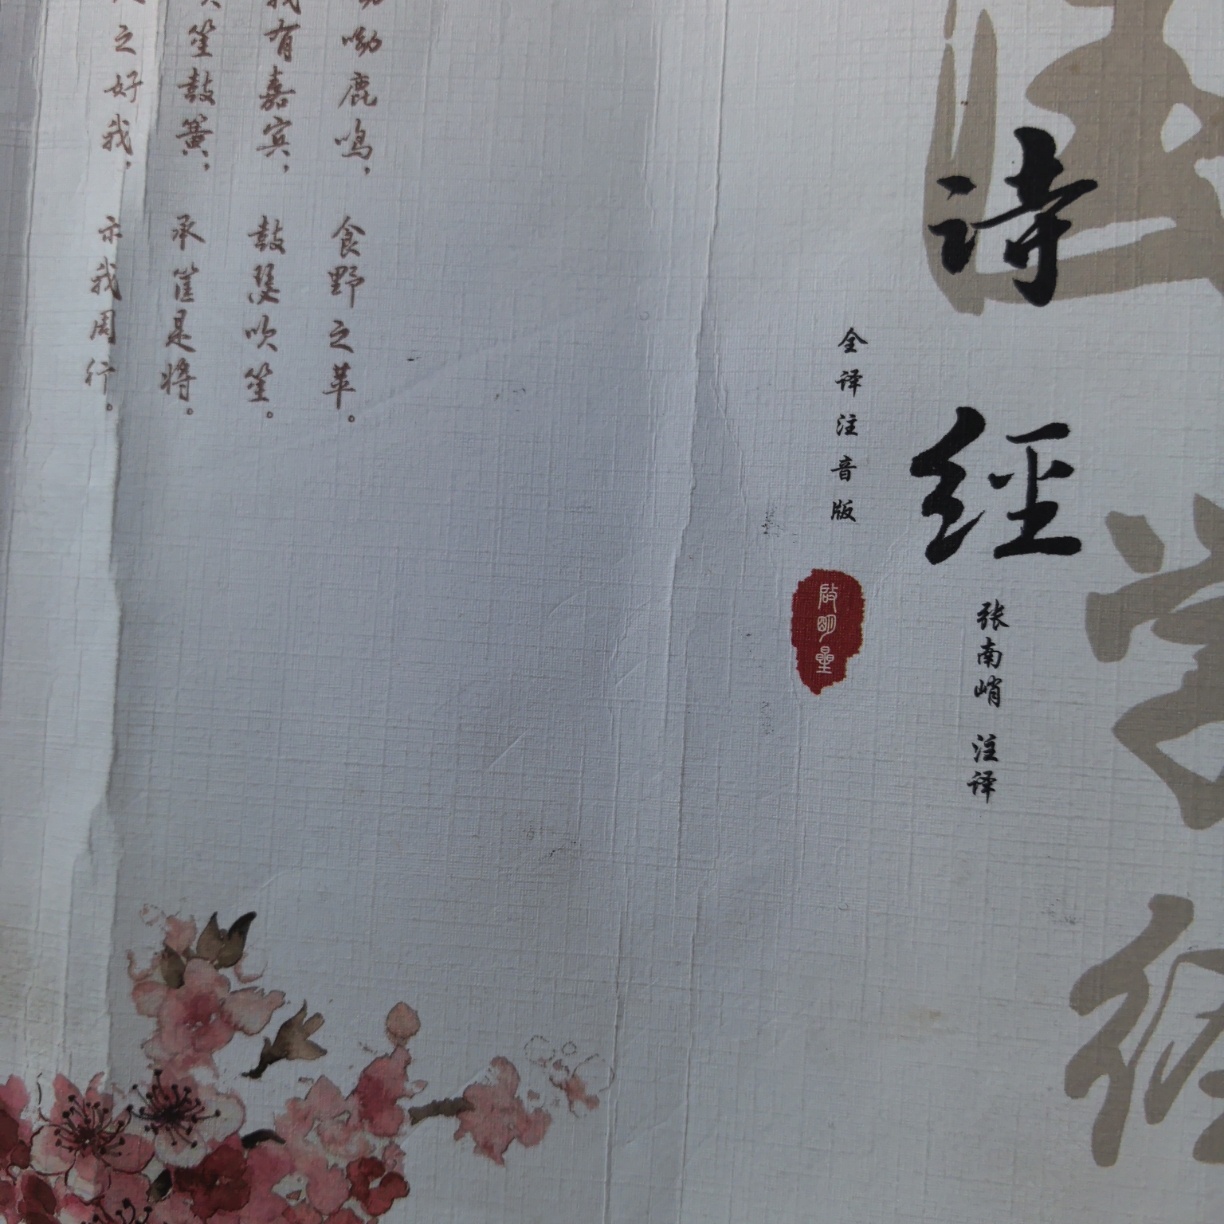 国学经
诗经
全译注音版
启明星
张南峭 注译
呦鹿鸣， 食野之苹。
我有嘉宾， 鼓瑟吹笙。
吹笙鼓簧， 承筐是将。
之好我， 示我周行。